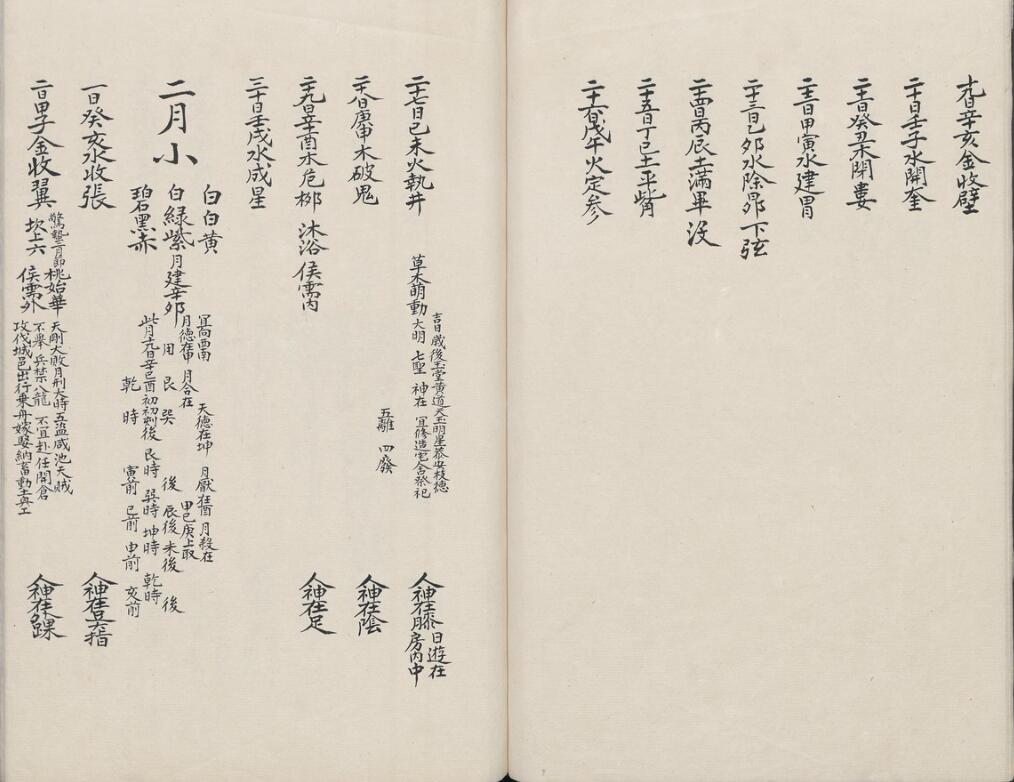 十九日辛亥金收壁
二十日壬子水開奎
二十一日癸丑木閉婁
二十二日甲寅水建胃
二十三日乙卯水除昴 下弦
二十四日丙辰土滿畢 没
二十五日丁巳土平觜
二十六日戊午火定參
二十七日己未火執井 草木萌動 吉日歲後玉堂黃道天玉明星泰安枝德 大明 七聖 神在 宜修造宅舍祭祀 人神在膝 日遊在房內中
二十八日庚申木破鬼 五離 四廢 人神在陰
二十九日辛酉木危柳 沐浴 侯需內 人神在足
三十日壬戌水成星
二月小
白白黃
白綠紫
碧黑赤
月建辛卯
宜向西南 天德在坤 月厭在酉 月殺在
月德在甲 月合在 甲己庚上取
用 艮 巽 後 辰後 未後 後
此月十九日辛巳酉初初刻後 艮時 巽時 坤時 乾時
乾 時 寅前 巳前 申前 亥前
一日癸亥水收張 人神在足大指
二日甲子金收翼 驚蟄二月節 桃始華 坎上六 侯需外 天剛大敗月刑大時五盜咸池天賊 不舉 兵禁八龍 不宜赴任開倉 攻伐城邑出行乘舟嫁娶納畜動土興工 人神在外踝